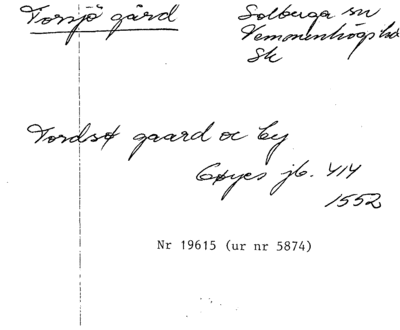 Torsjö gård
Solberga sn
Vemmenhögs hd
Sk
Tordsø gaard oc by
Gøyes jb. 414
1552
Nr 19615 (ur nr 5874)